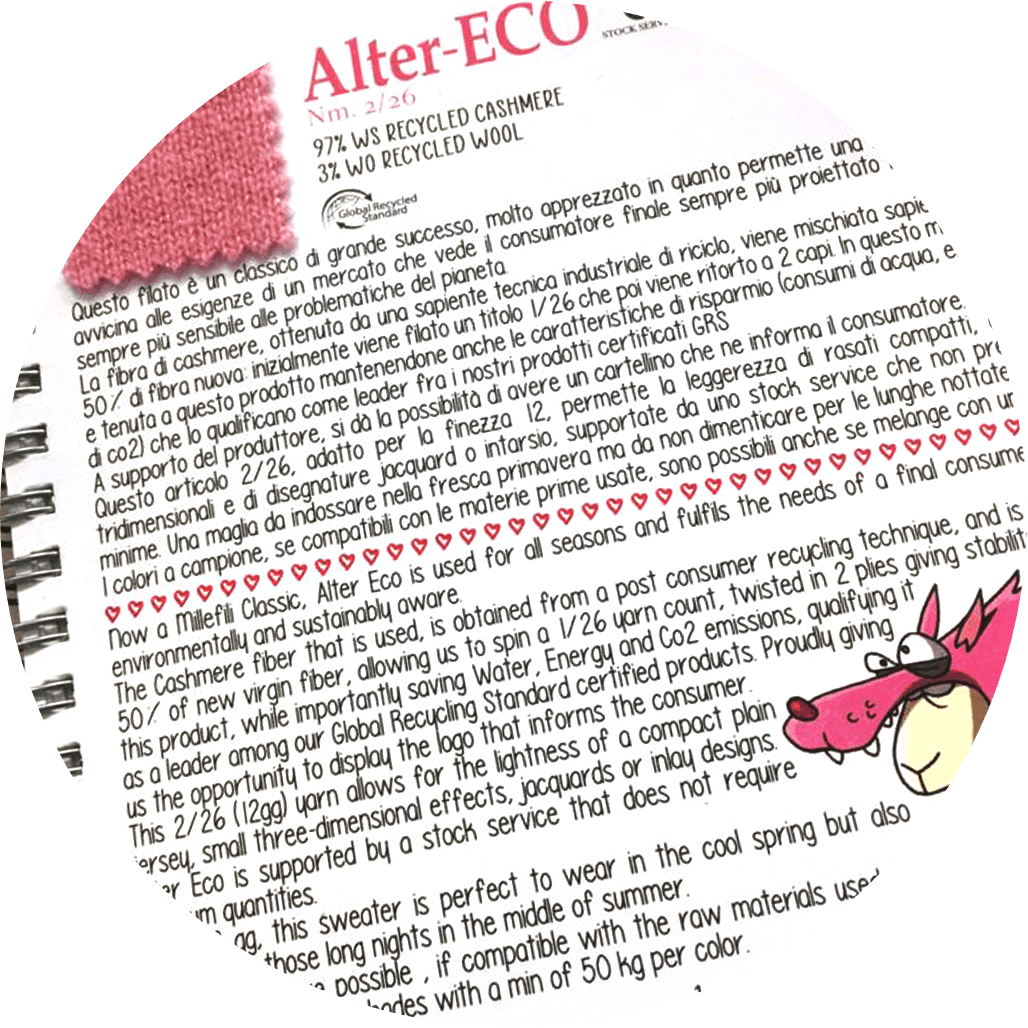 Alter-ECO
STOCK SERV
Nm. 2/26
97% WS RECYCLED CASHMERE
3% WO RECYCLED WOOL
Global Recycled
Standard
Questo filato è un classico di grande successo, molto apprezzato in quanto permette una
avvicina alle esigenze di un mercato che vede il consumatore finale sempre più proiettato
sempre più sensibile alle problematiche del pianeta.
La fibra di cashmere, ottenuta da una sapiente tecnica industriale di riciclo, viene mischiata
50% di fibra nuova: inizialmente viene filato un titolo 1/26 che poi viene ritorto a 2 capi. In questo
e tenuta a questo prodotto mantenendone anche le caratteristiche di risparmio (consumi di acqua, e
di co2) che lo qualificano come leader fra i nostri prodotti certificati GRS
A supporto del produttore, si dà la possibilità di avere un cartellino che ne informa il consumatore.
Questo articolo 2/26, adatto per la finezza 12, permette la leggerezza di rasati compatti,
tridimensionali e di disegnature jacquard o intarsio, supportate da uno stock service che non
minime. Una maglia da indossare nella fresca primavera ma da non dimenticare per le lunghe nottate
I colori a campione, se compatibili con le materie prime usate, sono possibili anche se melange con un
Now a Millefili Classic, Alter Eco is used for all seasons and fulfils the needs of a final consume
environmentally and sustainably aware.
The Cashmere fiber that is used, is obtained from a post consumer recycling technique, and is
50% of new virgin fiber, allowing us to spin a 1/26 yarn count, twisted in 2 plies giving stabilit
this product, while importantly saving Water, Energy and Co2 emissions, qualifying it
as a leader among our Global Recycling Standard certified products. Proudly giving
us the opportunity to display the logo that informs the consumer.
This 2/26 (12gg) yarn allows for the lightness of a compact plain
jersey, small three-dimensional effects, jacquards or inlay designs.
er Eco is supported by a stock service that does not require
um quantities.
gg, this sweater is perfect to wear in the cool spring but also
those long nights in the middle of summer.
possible , if compatible with the raw materials used
hades with a min of 50 kg per color.